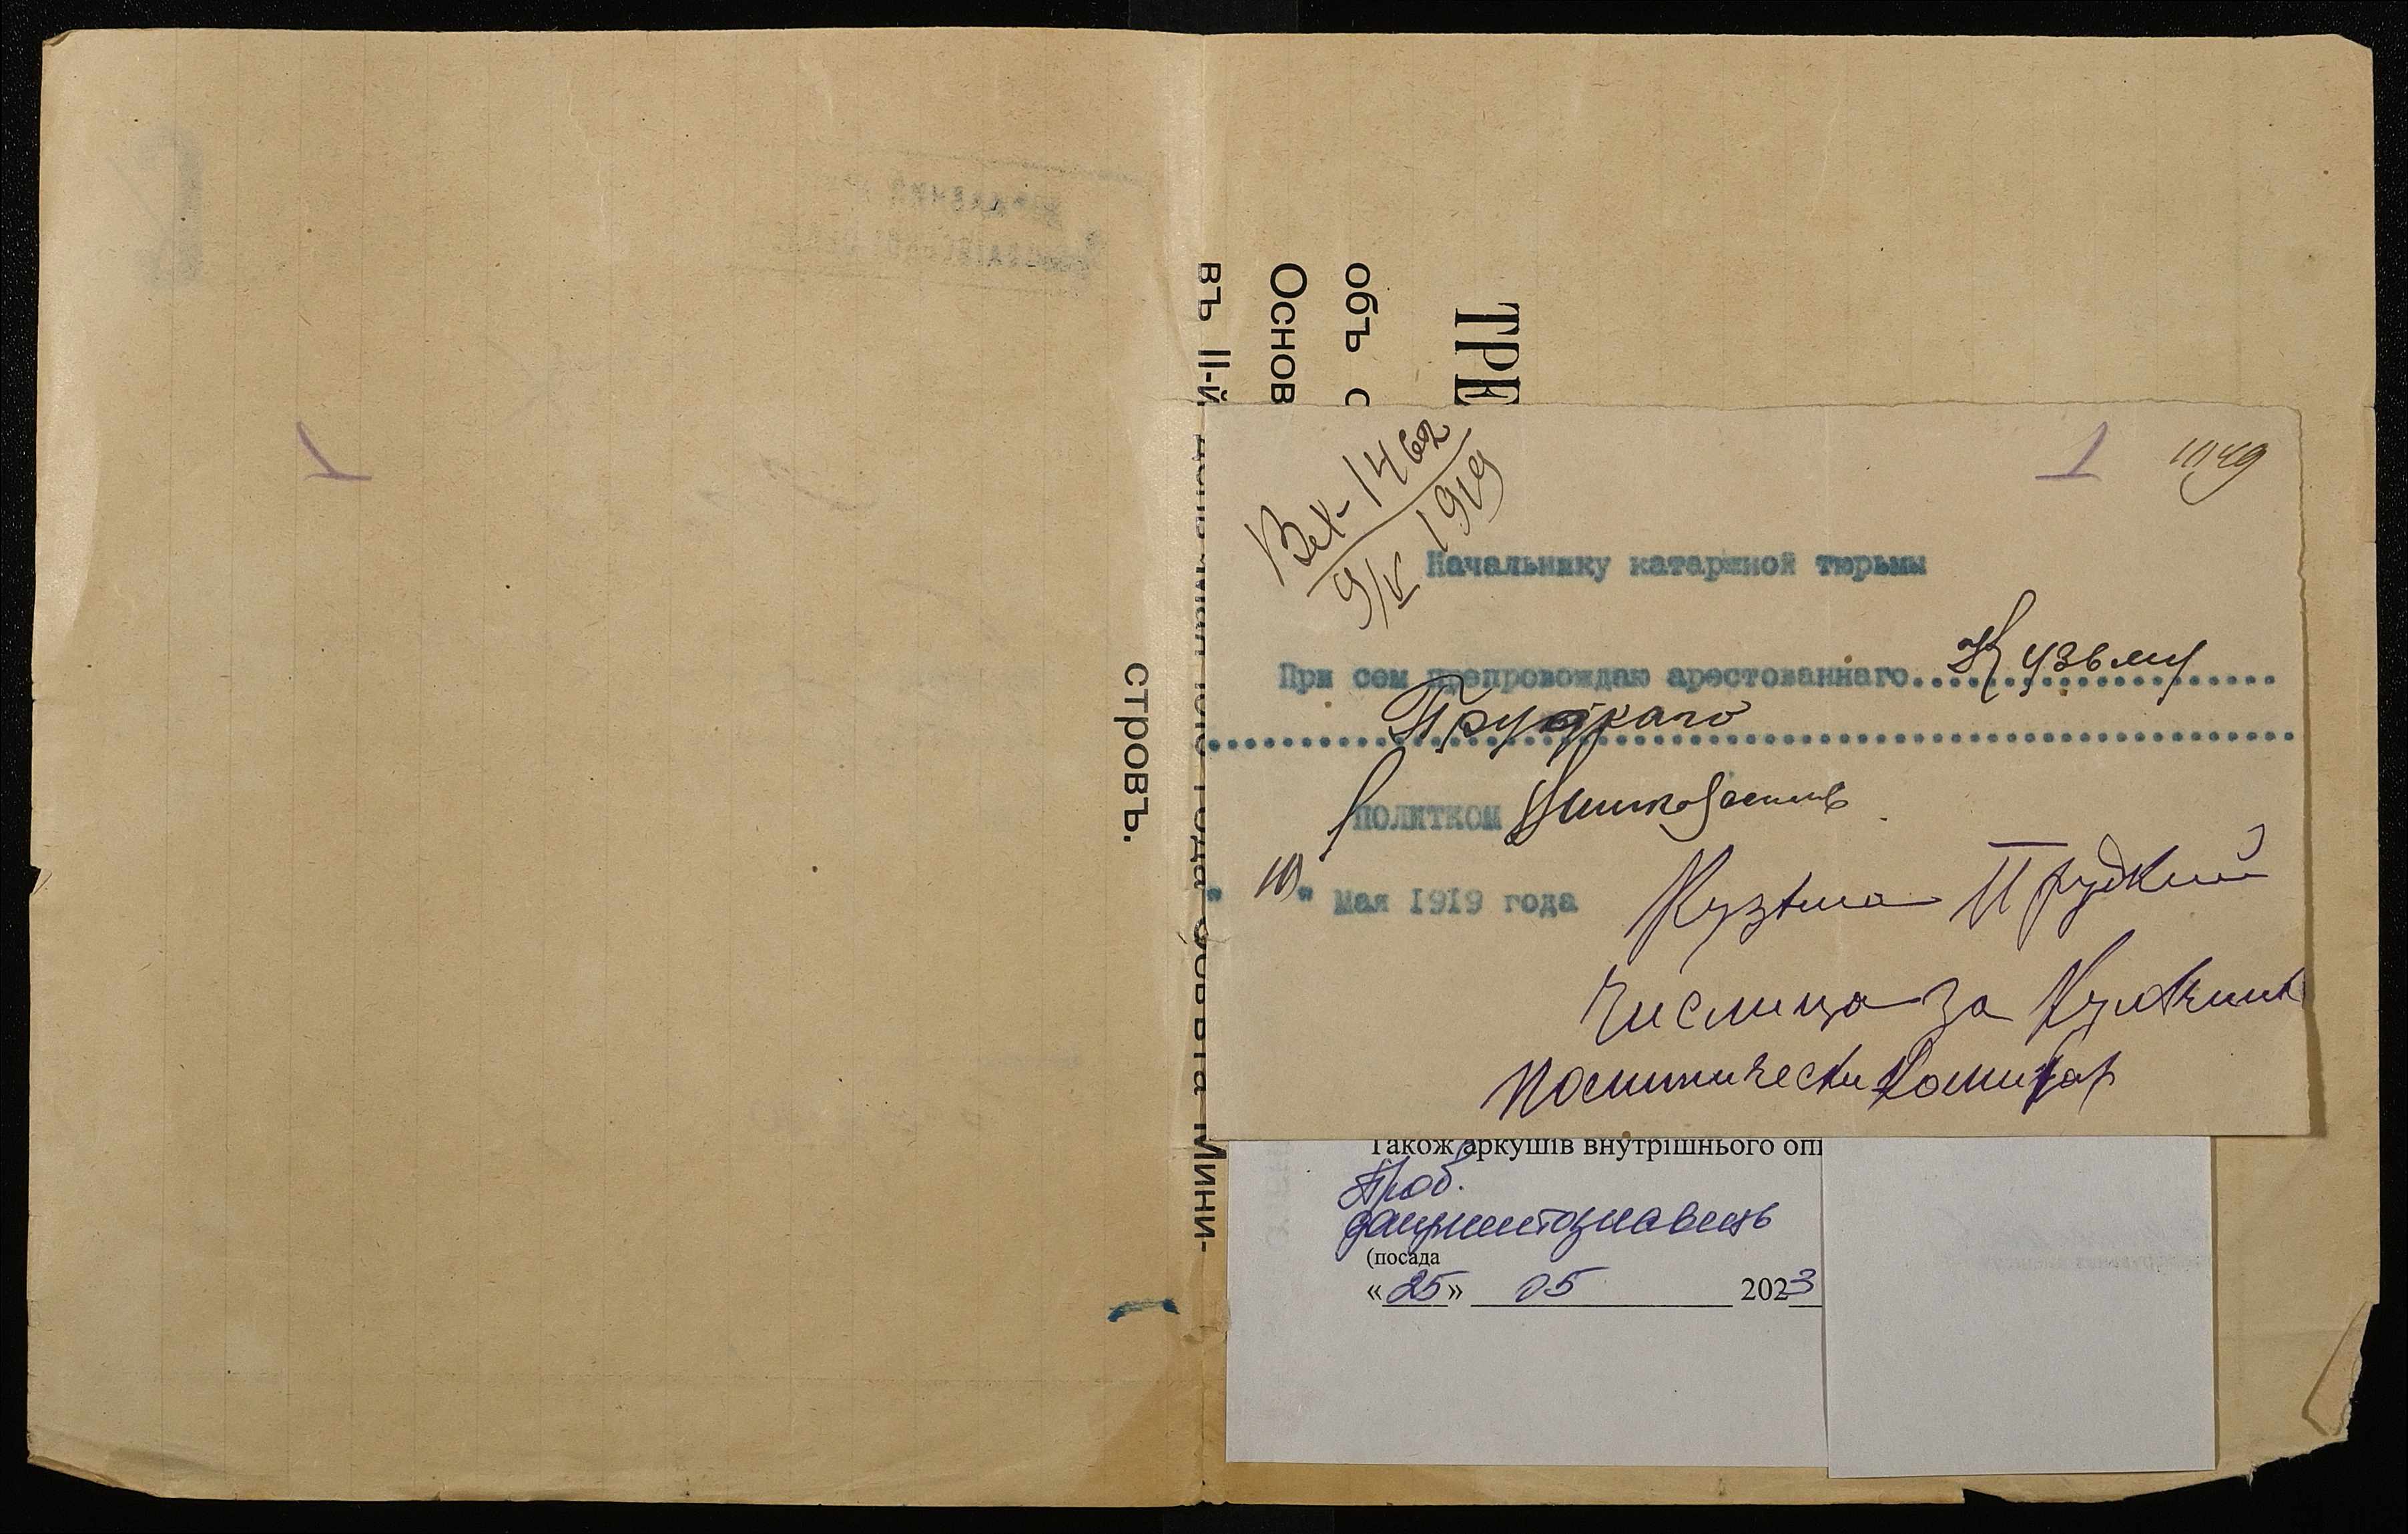 ТРЕ
объ с
Основ
въ II-й
Совѣта Мини-
стровъ.
1
Вех-1462
9/V 1919
Начальнику катаржной тюрьмы
При сем препровождаю арестованнаго Кузьму
Прудкаго
ПОЛИТКОМ
" 10 " Мая 1919 года
Кузьма Прудкий
Числица за
Политически Комисар
Також аркушів внутрішнього опи
Пров.
документознавець
(посада
«25» 05 2023